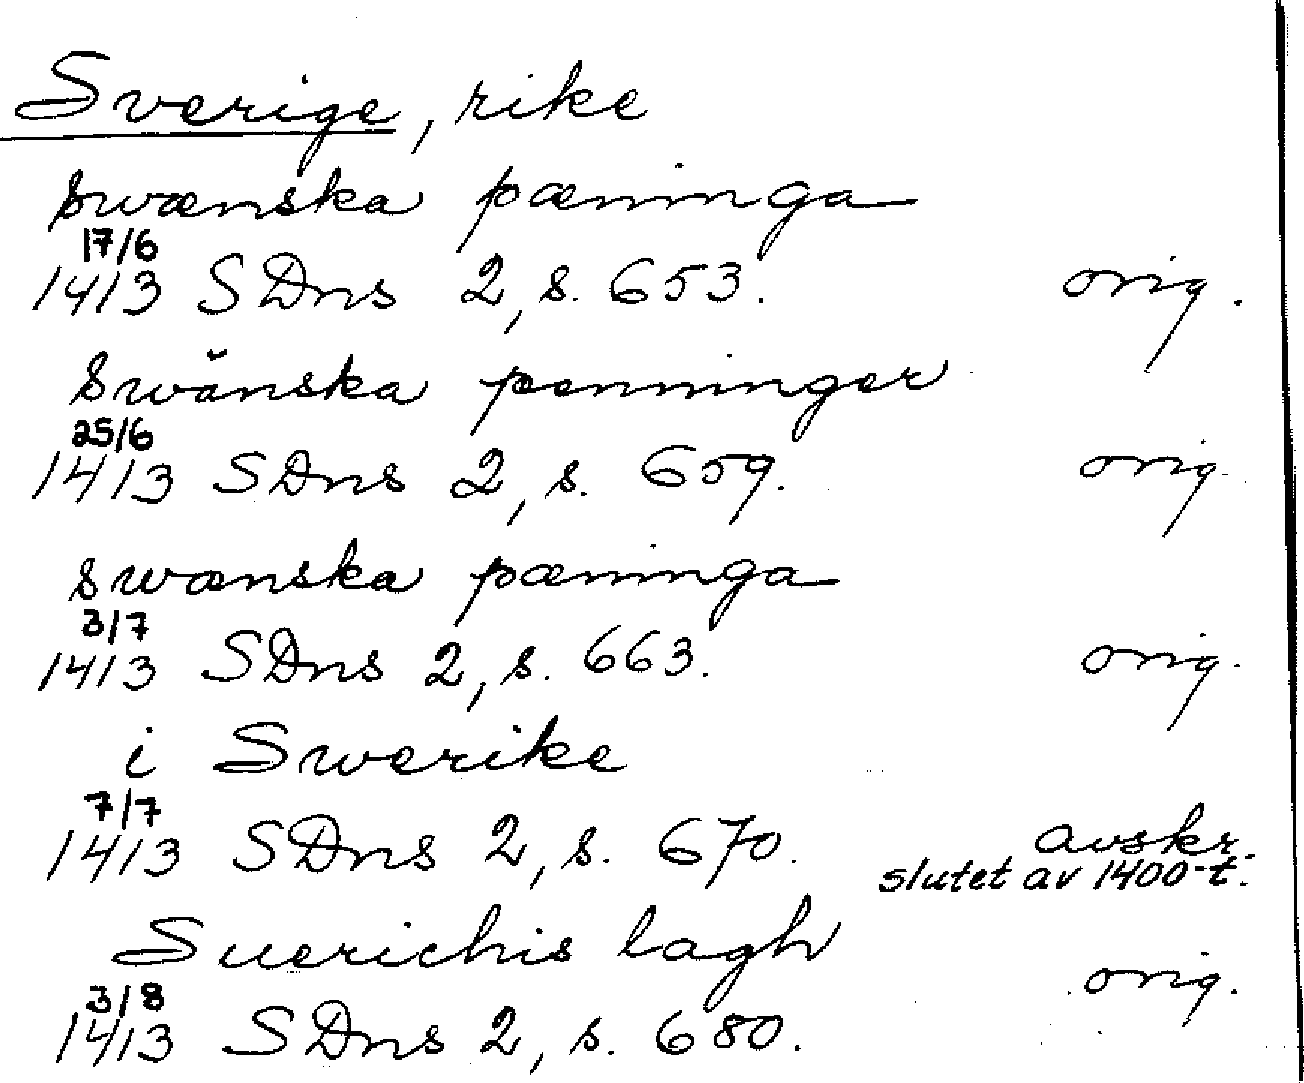 Sverige, rike
swænska pæninga
17/6
1413 SDns 2, s. 653. orig.
Swänska penninger
25/6
1413 SDns 2, s. 659. orig.
swænska pæninga
3/7
1413 SDns 2, s. 663. orig.
i Swerike
7/7
1413 SDns 2, s. 670. avskr.
slutet av 1400-t.
Suerichis lagh
3/8
1413 SDns 2, s. 680. orig.